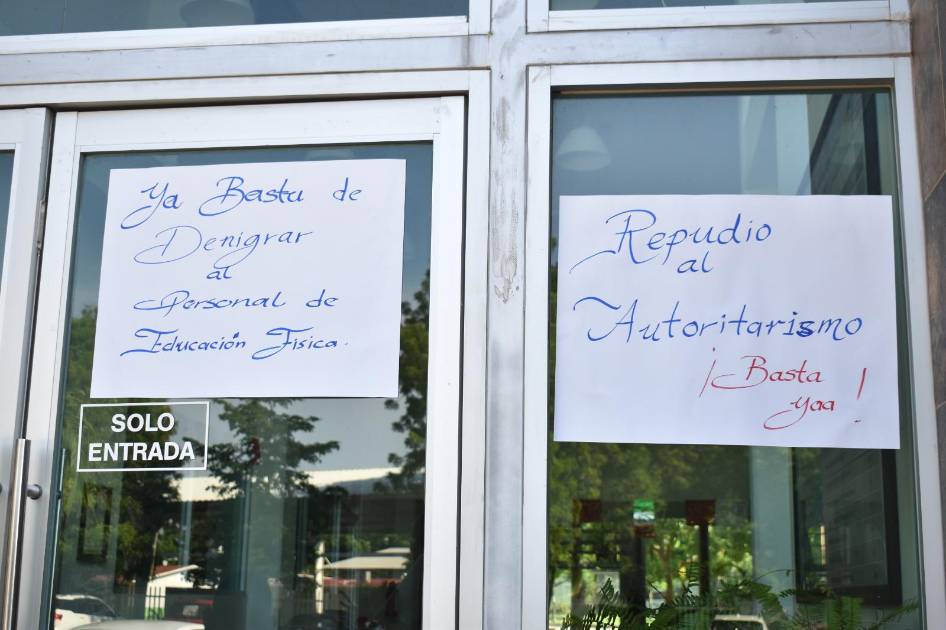 Ya Basta de
Denigrar
al
Personal de
Educación Física.
SOLO
ENTRADA
Repudio
al
Autoritarismo
¡Basta
yaa!